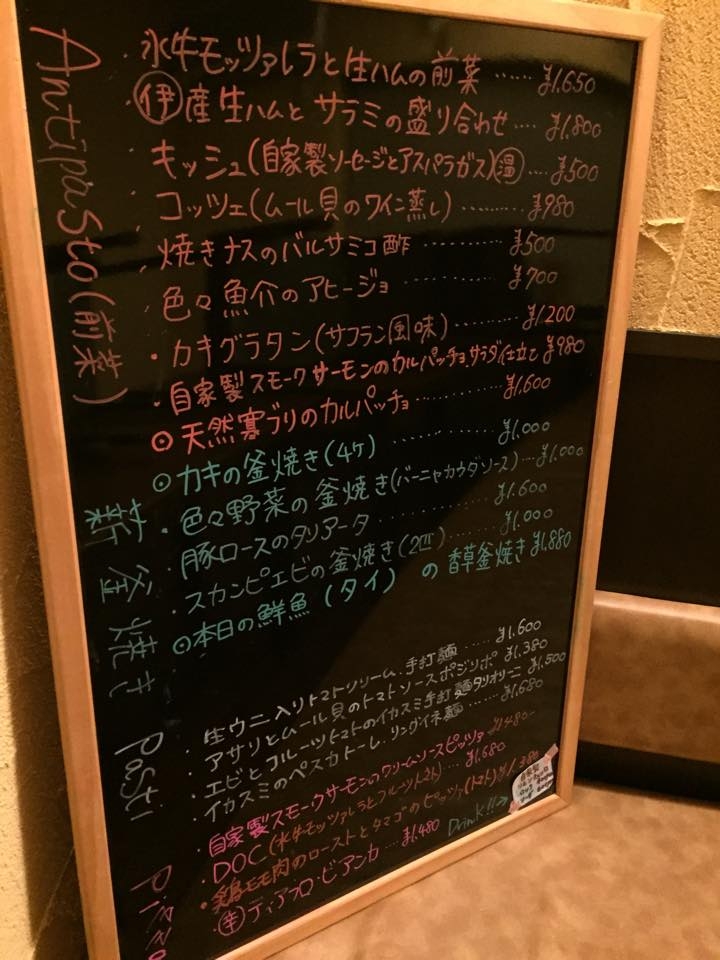 Antipasto(前菜)
・水牛モッツァレラと生ハムの前菜 …… ¥1.650
・㋑伊産生ハムとサラミの盛り合わせ …. ¥1.800
・キッシュ(自家製ソーセージとアスパラガス)温 …. ¥500
・コッツェ(ムール貝のワイン蒸し) ……… ¥980
・焼きナスのバルサミコ酢 ……… ¥500
・色々魚介のアヒージョ ……… ¥700
・カキグラタン(サフラン風味) ……… ¥1.200
・自家製スモークサーモンのカルパッチョ、サラダ仕立て ¥980
◎天然寒ブリのカルパッチョ ……… ¥1.600
薪釜焼き
◎カキの釜焼き(4ケ) ……… ¥1.000
・色々野菜の釜焼き(バーニャカウダソース) …. ¥1.000
・豚ロースのタリアータ ……… ¥1.600
・スカンピエビの釜焼き(2匹) ……… ¥1.000
◎本日の鮮魚(タイ)の香草釜焼き ¥1.880
Pasti
・生ウニ入りトマトクリーム、手打麺 …… ¥1.600
・アサリとムール貝のトマトソースポジリポ ¥1.380
・エビとフルーツトマトのイカスミ手打麺タリオリーニ ¥1.500
・イカスミのペスカトーレ、リングイネ麺 …… ¥1.680
Pizza
・自家製スモークサーモンのクリームソースピッツァ ¥1.480
・DOC(水牛モッツァレラとフルーツトマト) … ¥1.680
・鶏モモ肉のローストとタマゴのピッツァ(トマト) ¥1.380
・辛ディアブロ・ビアンカ …… ¥1.480
Drink!!→
自家製